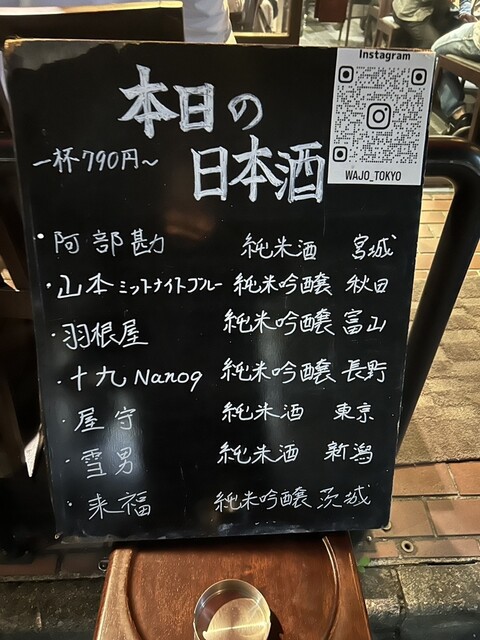 Instagram
本日の
WAJO_TOKYO
一杯790円～
日本酒
・阿部勘 純米酒 宮城
・山本ミットナイトブルー 純米吟醸 秋田
・羽根屋 純米吟醸 富山
・十九Nanoq 純米吟醸 長野
・屋守 純米酒 東京
・雪男 純米酒 新潟
・来福 純米吟醸 茨城